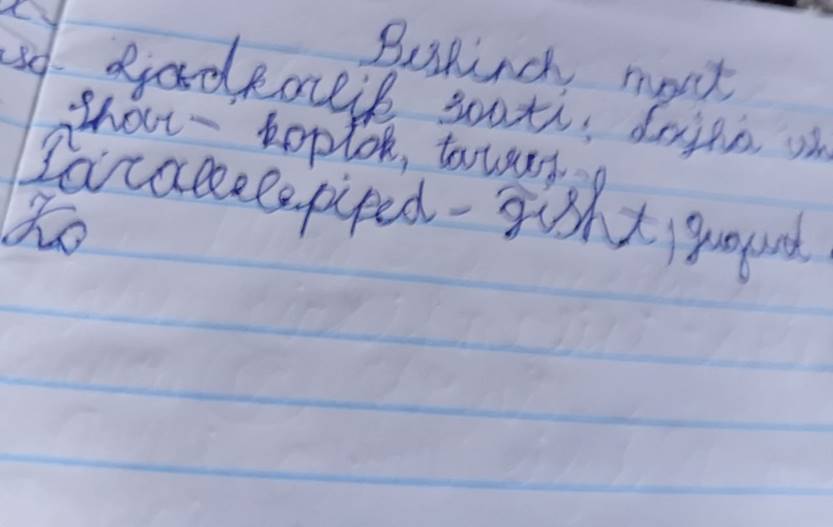 Beshinch mart
Ijodkorlik soati: Loyiha
Shar - koptok, tarvuz.
Parallelepiped - gisht, gugurt
Ko